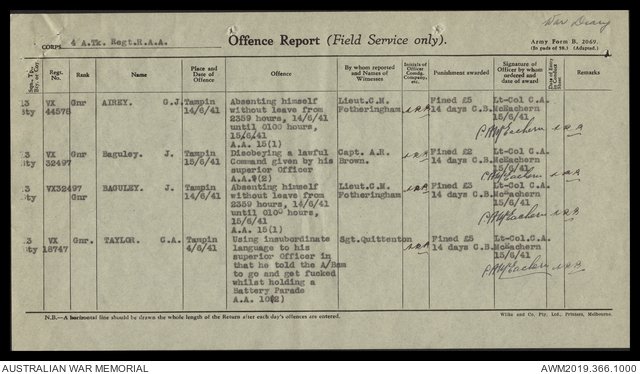 War Diary
CORPS 4 A.Tk. Regt.R.A.A.
Offence Report (Field Service only).
Army Form B. 2069.
(In pads of 50.) (Adapted.)
Regt. No.
Rank
Name
Place and Date of Offence
Offence
By whom reported and Names of Witnesses
Initials of Officer Comdg. Company, etc.
Punishment awarded
Signature of Officer by whom ordered and date of award
Date of Entry in Conduct Sheet
Remarks
13 VX Gnr AIREY. G.J. Tampin Absenting himself Lieut.C.M. Fined £5 Lt-Col C.A.
Bty 44578 14/6/41 without leave from Fotheringham 14 days C.B. McEachern
2359 hours, 14/6/41 15/6/41
until 0100 hours,
15/6/41
A.A. 15(1)
13 VX Gnr Baguley. J. Tampin Disobeying a lawful Capt. A.R. Fined £2 Lt-Col C.A.
Bty 32497 15/6/41 Command given by his Brown. 14 days C.B. McEachern
superior Officer 15/6/41
A.A. 9(2)
13 VX32497 BAGULEY. J. Tampin Absenting himself Lieut.C.M. Fined £3 Lt-Col C.A.
Bty Gnr 14/6/41 without leave from Fotheringham 14 days C.B. McEachern
2359 hours, 14/6/41 15/6/41
until 0100 hours,
15/6/41
A.A. 15(1)
13 VX Gnr. TAYLOR. C.A. Tampin Using insubordinate Sgt.Quittenton Fined £5 Lt-Col.C.A.
Bty 18747 4/6/41 language to his 14 days C.B. McEachern
superior Officer in 15/6/41
that he told the A/Bsm
to go and get fucked
whilst holding a
Battery Parade
A.A. 10(2)
N.B.—A horizontal line should be drawn the whole length of the Return after each day's offences are entered.
Wilke and Co. Pty. Ltd., Printers, Melbourne.
AUSTRALIAN WAR MEMORIAL
AWM2019.366.1000